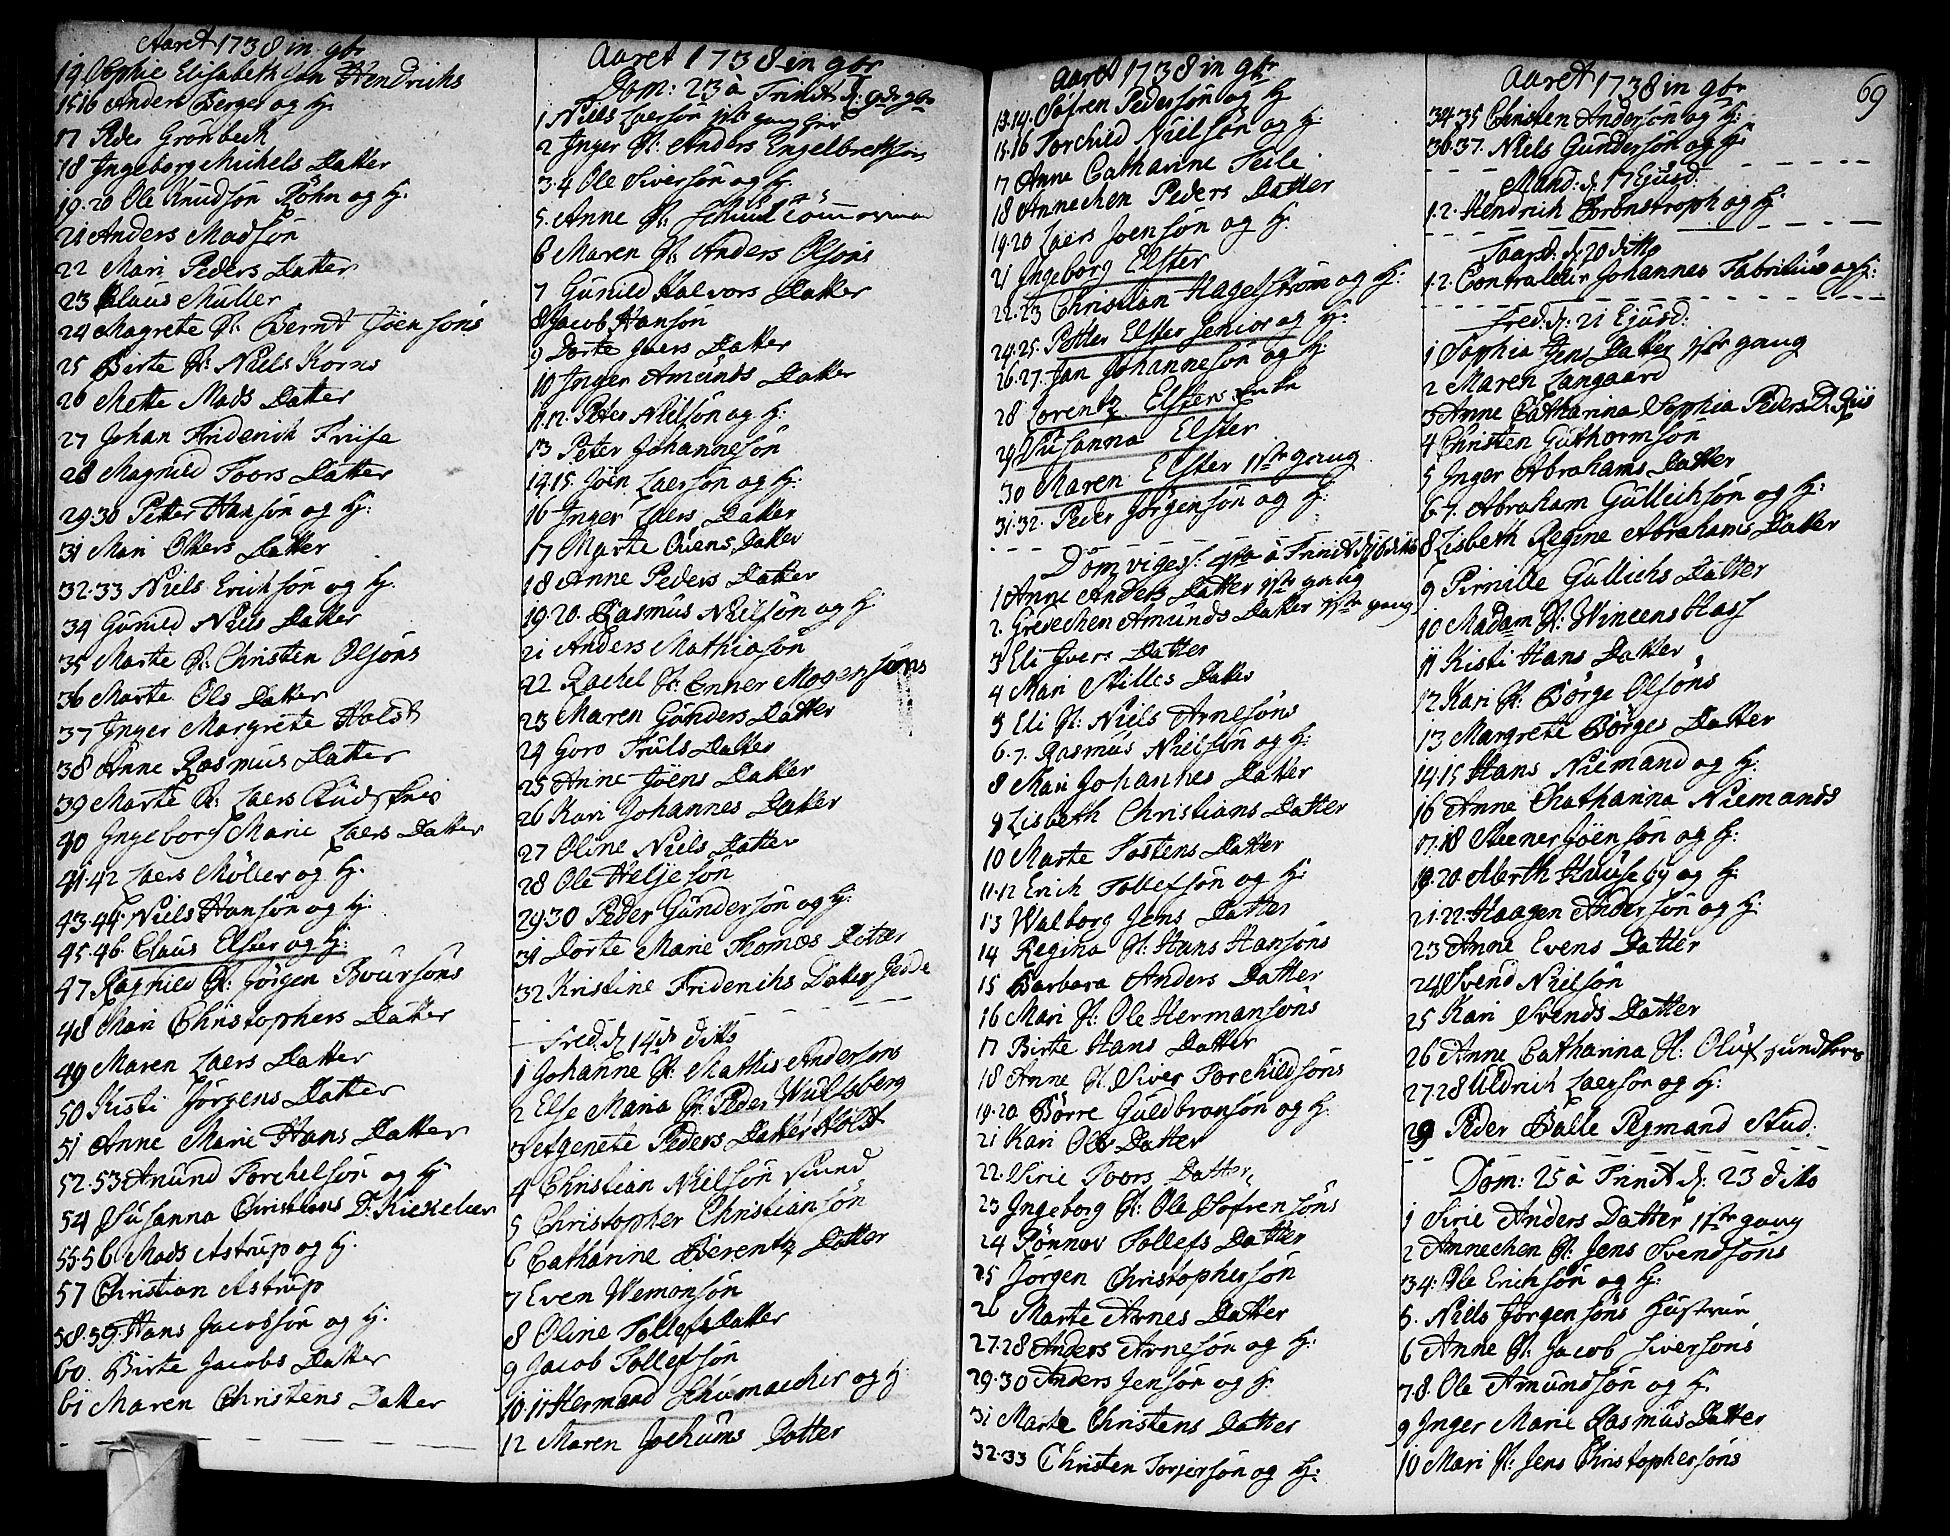 Aaret 1738 in 9br
14 Sophie Elisabeth Jan Hendrichs
15 16 Anders Berger og H:
17 Peder Grönbech
18 Ingeborg Michels Datter
19. 20 Ole Knudsön Röhn og H:
21 Anders Madsön
22 Mari Peders Datter
23 Claus Muller
24 Magrete H: Bernt Jöensöns
25 Birte H: Niels Korns
26 Mette Mads Datter
27 Johan Friderich Friise
28 Magnild Toors Datter
29. 30 Petter Hansön og H:
31 Mari Olters Datter
32. 33 Niels Erichsön og H:
34 Gunild Niels Datter
35 Marte H: Christen Olsöns
36 Marte Ols Datter
37 Inger Margrete Holst
38 Anne Rasmus Datter
39 Marte H: Laers
40 Ingeborg Marie Laers Datter
41. 42 Laers Möller og H:
43. 44. Niels Hansön og H:
45. 46. Claus Elster og H:
47 Ragnild H: Jörgen Boursöns
48 Mari Christophers Datter
49 Maren Laers Datter
50 Kisti Jörgens Datter
51 Anne Marie Hans Datter
52. 53 Amund Torchelsön og H:
54 Susanna Christians D:
55. 56 Mads Astrup og H:
57 Christian Astrup
58. 59. Hans Jacobsön og H:
60. Birte Jacobs Datter
61 Maren Christens Datter
Aaret 1738 in 9br
Dom: 23 à Trinit d: 9br
1 Niels Laersön
2 Inger H: Anders Engelbretsöns
3. 4 Ole Siversön og H:
5. Anne H:
6 Maren H: Anders Olsöns
7 Gunild Halvors Datter
8 Jacob Hansön
9 Dorte Joers Datter
10 Inger Amunds Datter
11. 12. Peter Nielsön og H:
13 Peter Johannesön
14. 15. Jöen Laersön og H:
16 Inger Laers Datter
17 Marte Ovens Datter
18 Anne Peders Datter
19. 20. Rasmus Nielsön og H:
21 Anders Mathiasön
22 Rachel H: Enner Mogensöns
23 Maren Gunders Datter
24 Goro Truls Datter
25 Anne Jöens Datter
26 Kari Johannes Datter
27 Oline Niels Datter
28 Ole Heljesön
29. 30 Peder Gundersön og H:
31 Dorte Marie Thomæs Datter
32 Kristine Friderichs Datter
Fred: d: 14de ditto
1 Johanne H: Mathis Andersöns
2 Else Maria H: Peder Wulsberg
3 Agenete Peders Datter Holst
4 Christian Nielsön Lund
5 Christopher Christiansön
6 Catharine Berentz Datter
7 Even Wemonsön
8 Oline Tollefs Datter
9 Jacob Tollefsön
10. 11 Hermand Schumacher og H:
12 Maren Jochums Datter
Aaret 1738 in 9br
13. 14. Söfren Pedersön og H:
15. 16 Torchild Nielsön og H:
17 Anne Catharine Feile
18 Annechen Peders Datter
19. 20 Laers Joensön og H:
21 Ingeborg Elster
22. 23 Christian Hagelström og H:
24. 25. Petter Elster Senior og H:
26. 27. Jan Johannesön og H:
28 Lorentz Elsters Enke
29 Susanna Elster
30 Maren Elster 1ste gang
31. 32. Peder Jörgensön og H:
Dom viges: 4ta à Trinit d: 16 ditto
1 Anne Anders Datter 1ste gang
2. Grevechen Amunds Datter 1ste gang
3 Eli Ivers Datter
4 Mari Nilles Datter
5 Eli H: Niels Arnesöns
6. 7. Rasmus Nielsön og H:
8 Mari Johannes Datter
9 Lisbeth Christians Datter
10 Marte Tostens Datter
11. 12 Erich Tollefsön og H:
13 Walborg Jens Datter
14 Regina H: Hans Hansöns
15 Barbara Anders Datter
16 Mari H: Ole Hermansöns
17 Birte Hans Datter
18 Anne H: Siver Torchildsöns
19. 20 Börre Guldbransön og H:
21 Kari Ols Datter
22. Sirie Toors Datter
23 Ingeborg H: Ole Söfrensöns
24 Rönnov Tollefs Datter
25 Jörgen Christophersön
26 Marte Arnes Datter
27. 28 Anders Arnesön og H:
29. 30 Anders Jensön og H:
31 Marte Christens Datter
32. 33 Christen Torjersön og H:
Aaret 1738 in 9br
69
34 35 Christen Andersön og H:
36. 37. Niels Gundersön og H:
Mand: d: 17 Ejusd:
1. 2. Hendrich Bronstroph og H:
Taarsd: d: 20 ditto
1. 2. Contraleur Johannes Fabritius og H:
Fred: d: 21 Ejusd:
1 Sophia Jens Datter 1ste gang
2 Maren Langaard
3 Anne Catharina Sophia Peders D. Riis
4 Christen Guthormsön
5 Inger Abrahams Datter
6. 7. Abraham Gullichsön og H:
8 Lisbeth Regine Abrahams Datter
9 Pirnille Gullichs Datter
10 Madam H: Wincens Hass
11 Kisti Hans Datter
12 Kari H: Börge Olsöns
13 Margrete Börges Datter
14. 15 Hans Niemand og H:
16 Anne Chatharina Niemands
17. 18 Steener Jöensön og H:
19. 20 Marth Huuseby og H:
21. 22. Haagen Andersön og H:
23 Anne Evens Datter
24 Svend Nielsön
25 Kari Svends Datter
26 Anne Catharina H: Oluf
27. 28 Uldrich Laersön og H:
29 Peder Balle Pegmand Stud:
Dom: 25 à Trinit d: 23 ditto
1 Sirie Anders Datter 1ste gang
2 Annechen H: Jens Svendsöns
3 4. Ole Erichsön og H:
5. Niels Jörgensöns Hustrue
6 Anne H: Jacob Siversöns
7. 8. Ole Amundsön og H:
9 Inger Marie Rasmus Datter
10 Mari H: Jens Christophersöns